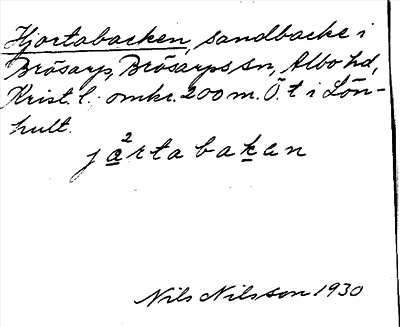 Hjortabacken, sandbacke i
Brösarp, Brösarps sn, Albo hd,
Krist. l. omkr. 200 m. Ö. t i Lön-
hult.
j²artabaken
Nils Nilsson 1930